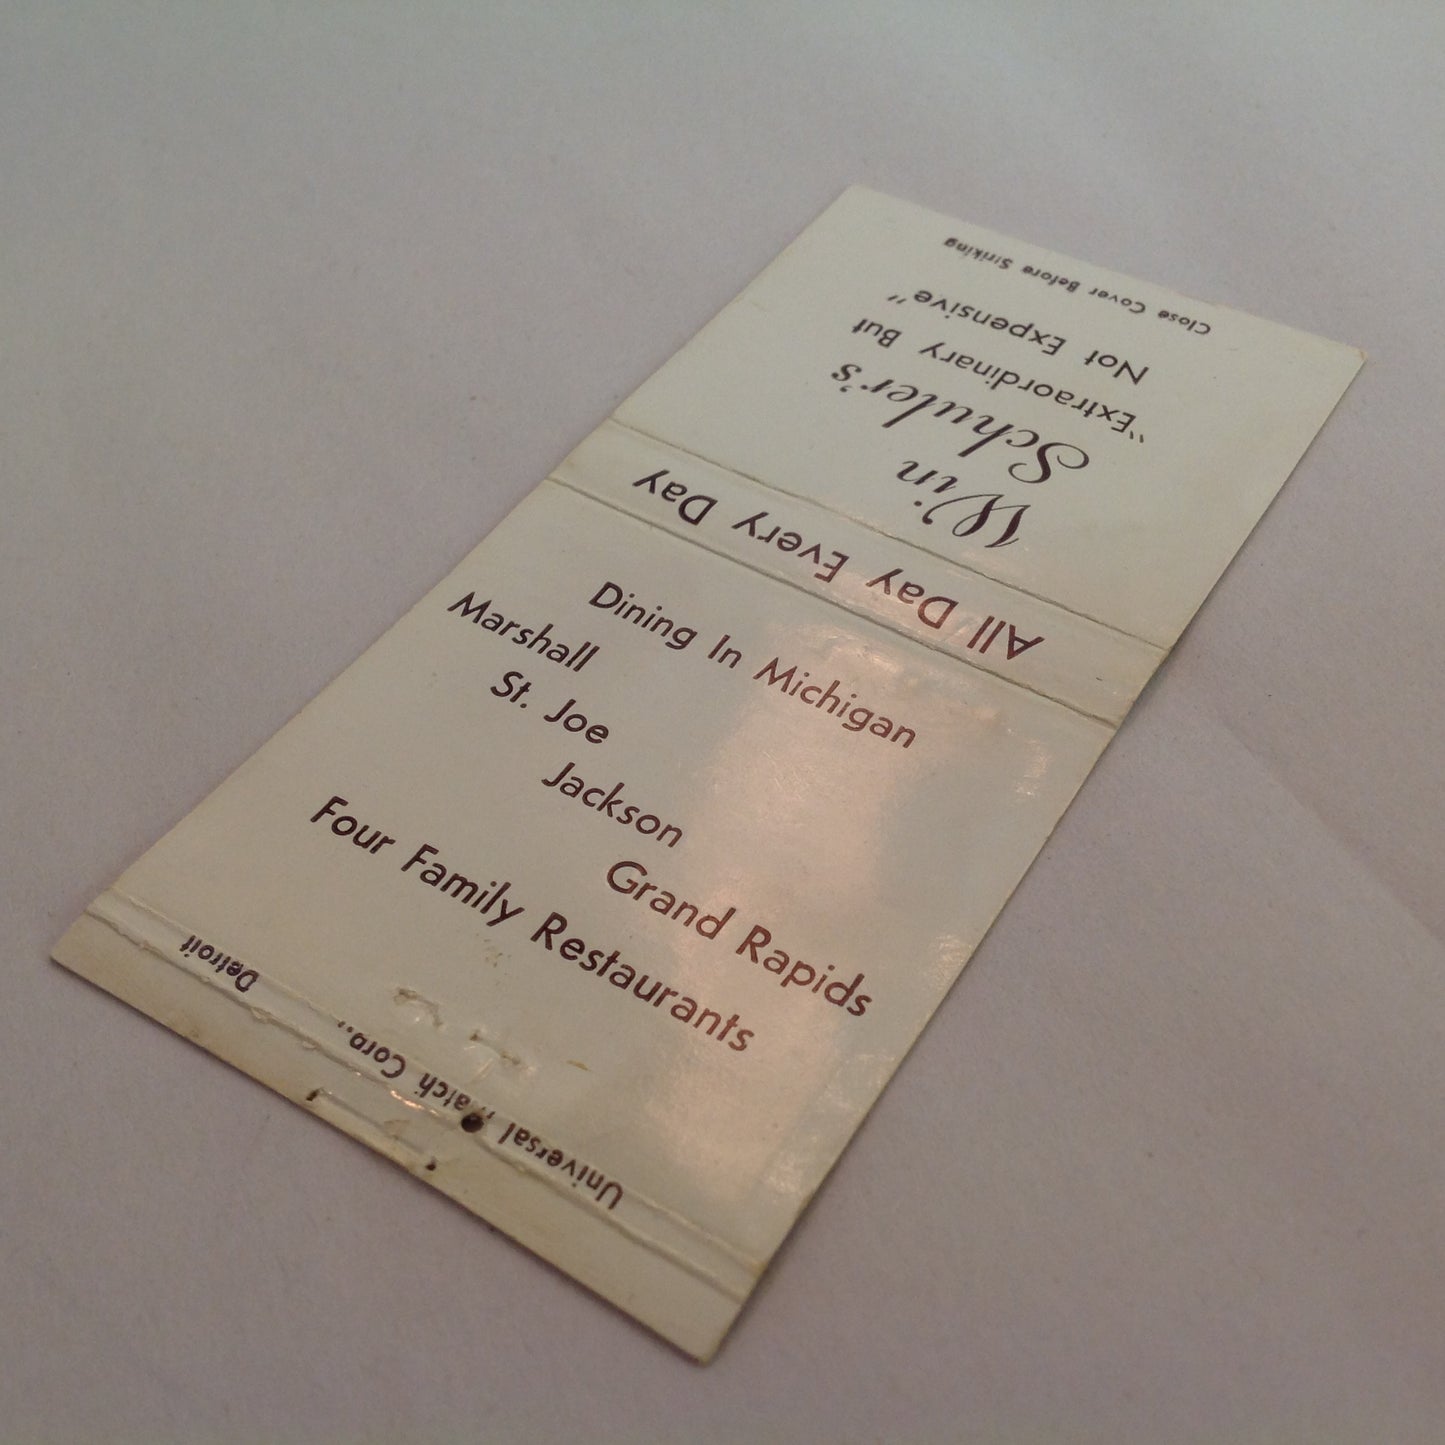 Close Cover Before Striking
"Extraordinary But
Not Expensive"
Win
Schuler's
All Day Every Day
Dining In Michigan
Marshall
St. Joe
Jackson
Grand Rapids
Four Family Restaurants
Universal Match Corp., Detroit